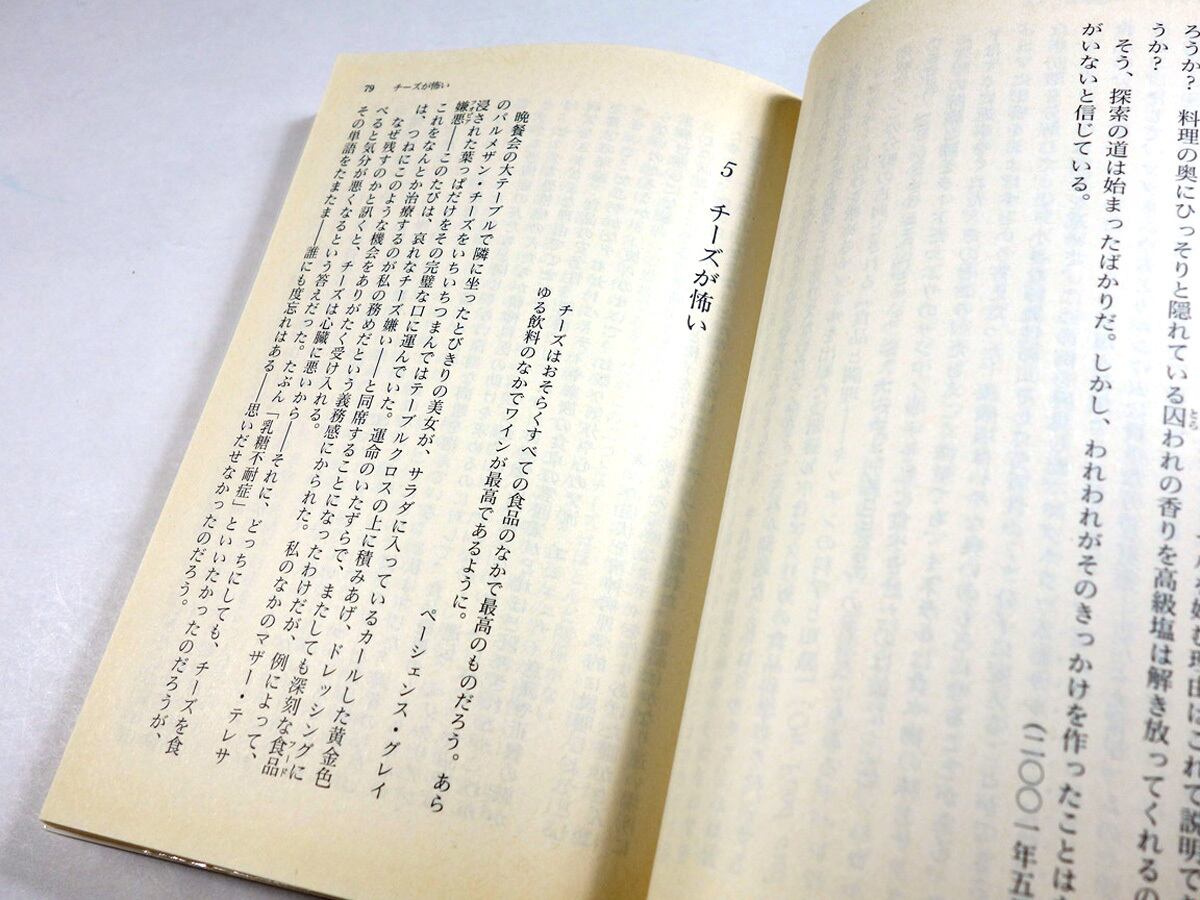 理由はこれで説明で
ろうか？　料理の奥にひっそりと隠れている囚われの香りを高級塩は解き放ってくれるの
うか？
そう、探索の道は始まったばかりだ。しかし、われわれがそのきっかけを作ったことは
がいないと信じている。
（二〇〇一年五
79　チーズが怖い
5　チーズが怖い
チーズはおそらくすべての食品のなかで最高のものだろう。あら
ゆる飲料のなかでワインが最高であるように。
ペーシェンス・グレイ
晩餐会の大テーブルで隣に坐ったとびきりの美女が、サラダに入っているカールした黄金色
のパルメザン・チーズをいちいちつまんではテーブルクロスの上に積みあげ、ドレッシングに
浸された葉っぱだけをその完璧な口に運んでいた。運命のいたずらで、またしても深刻な食品
嫌悪――このたびは、哀れなチーズ嫌い――と同席することになったわけだが、例によって、
これをなんとか治療するのが私の務めだという義務感にかられた。私のなかのマザー・テレサ
は、つねにこのような機会をありがたく受け入れる。
なぜ残すのかと訊くと、チーズは心臓に悪いから――それに、どっちにしても、チーズを食
べると気分が悪くなるという答えだった。たぶん「乳糖不耐症」といいたかったのだろうが、
その単語をたまたま――誰にも度忘れはある――思いだせなかったのだろう。